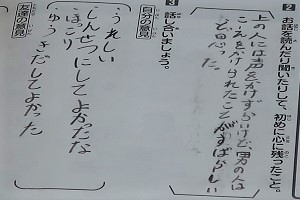 2 お話を読んだり聞いたりして、初めに心に残ったこと。
上の人には声をかけずらいけど、男の人は
こえをかけられたことがすばらしい
と思った。
3 話し合いましょう。
自分の意見
うれしい
しんせつにしてよかだな
ほっこり
ゆうきだしてよかった
友達の意見